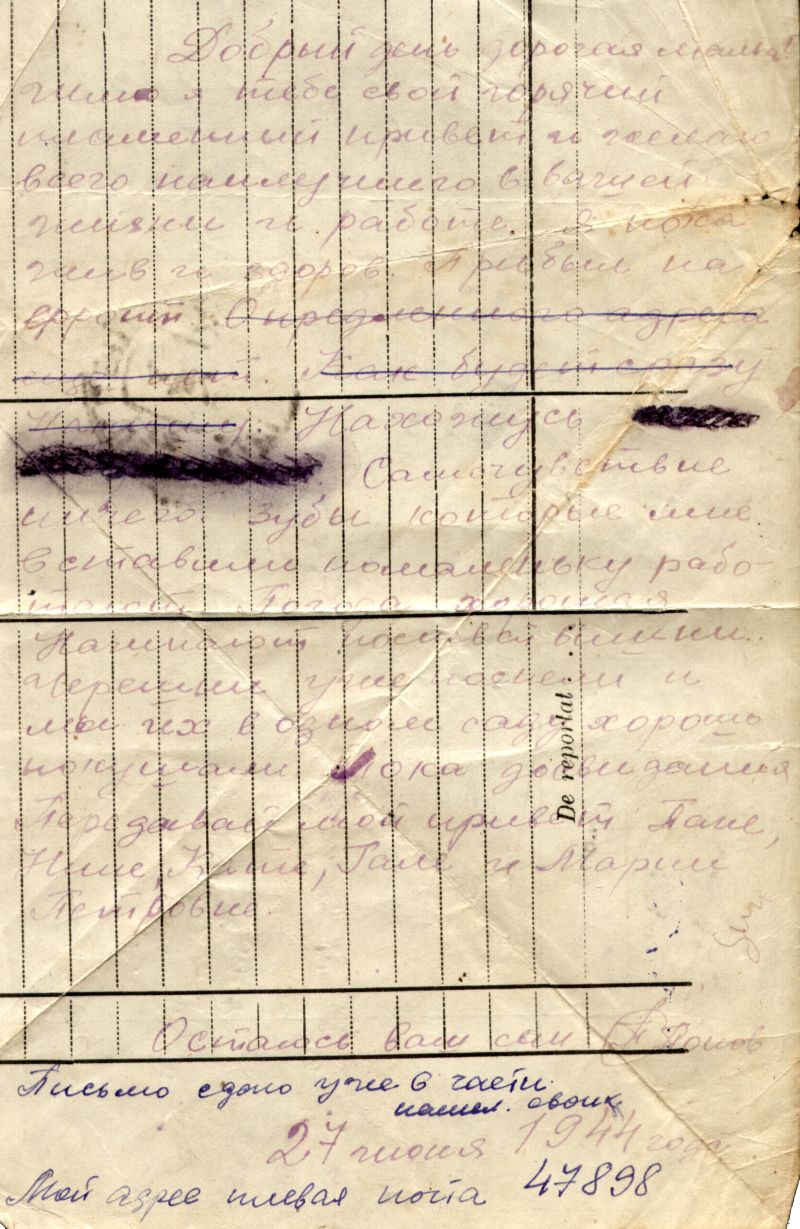 Добрый день дорогая мама!
Шлю я тебе свой горячий
пламенный привет и желаю
всего наилучшего в вашей
жизни и работе. Я пока
жив и здоров. Прибыл на
фронт. Определенного адреса
еще нет. Как будет сразу
Напишу. Нахожусь
Самочувствие
ничего. Зубы которые мне
вставили помаленьку рабо-
тают. Погода хорошая
Начинают поспевать вишни.
Черешни уже поспели и
мы их в одном саду хорошо
покушали. Пока досвидания
Передавай мой привет Пане,
Нине, Кате, Гале и Марии
Петровне.
De reportat . . .
Остаюсь ваш сын Попов
Письмо сдано уже в части
нашел своих
27 июня 1944 года
Мой адрес плевая почта 47898